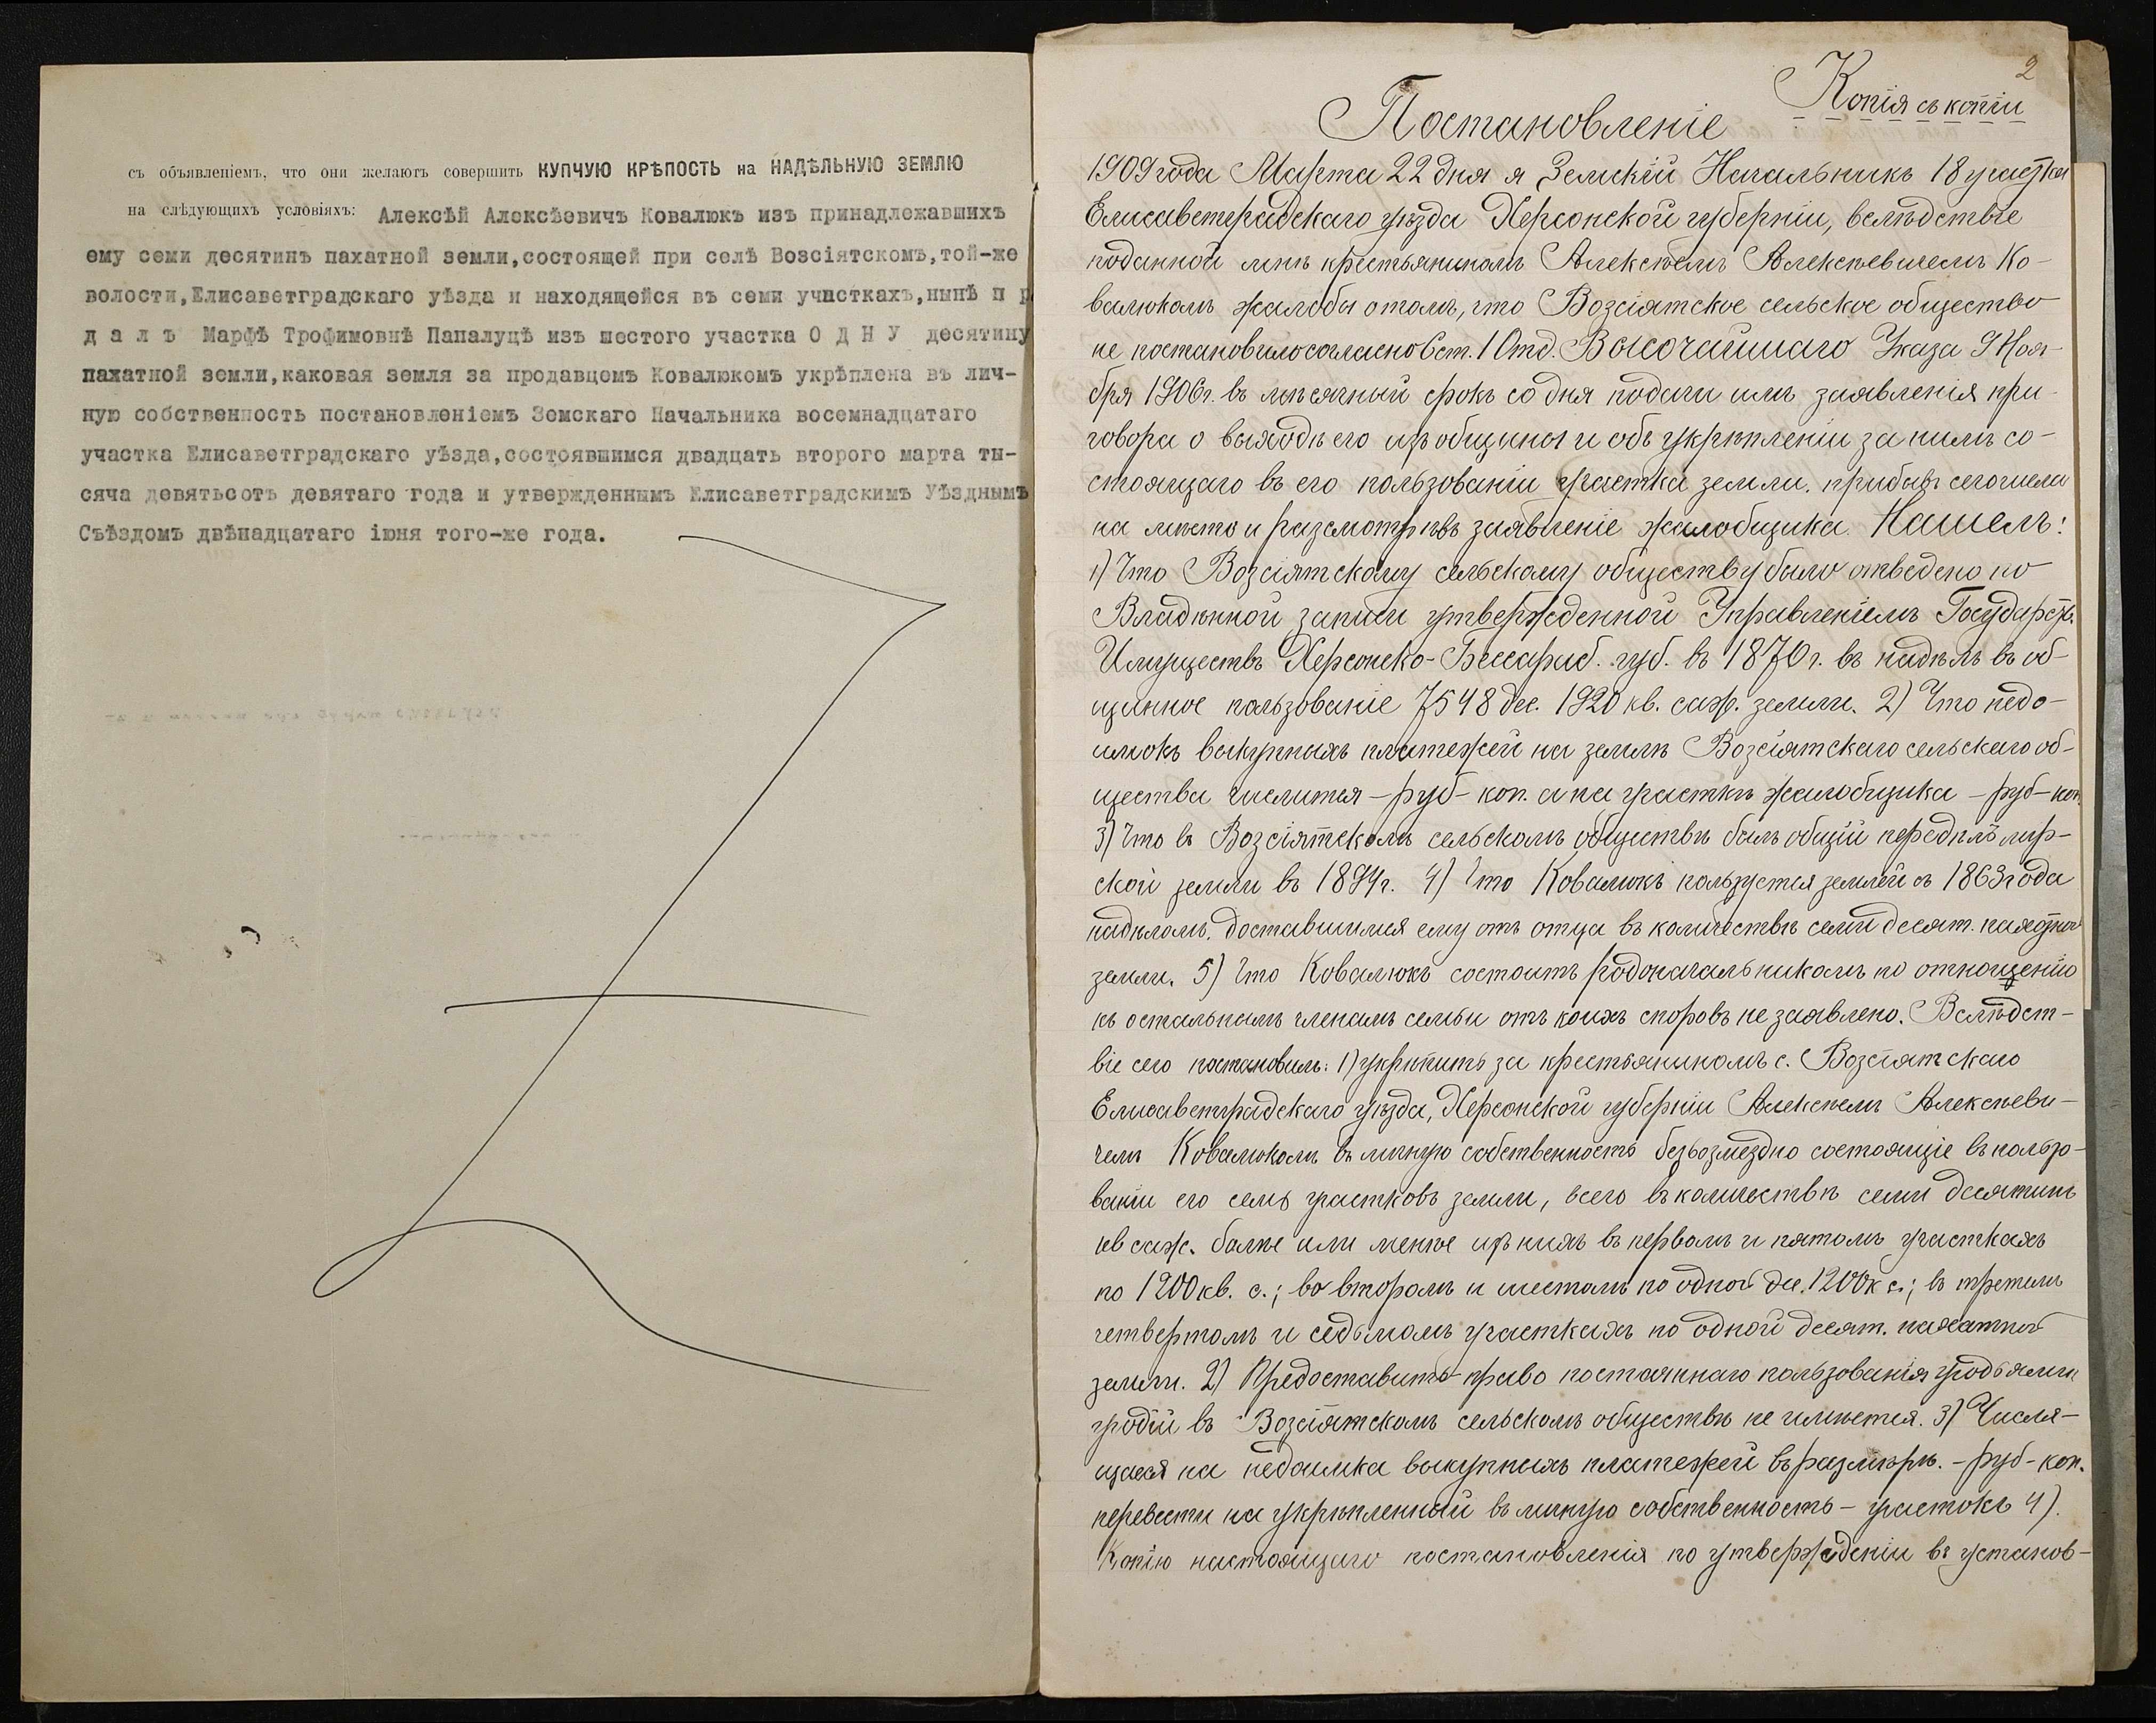 съ объявленіемъ, что они желаютъ совершить КУПЧУЮ КРѢПОСТЬ на НАДѢЛЬНУЮ ЗЕМЛЮ
на слѣдующихъ условіяхъ: Алексѣй Алексѣевичъ Ковалюкъ изъ принадлежавшихъ
ему семи десятинъ пахатной земли,состоящей при селѣ Возсіятскомъ,той-же
волости,Елисаветградскаго уѣзда и находящейся въ семи участкахъ,нынѣ п р
д а л ъ Марфѣ Трофимовнѣ Папалуцѣ изъ шестого участка О Д Н У десятину
пахатной земли,каковая земля за продавцемъ Ковалюкомъ укрѣплена въ лич-
ную собственность постановленіемъ Земскаго Начальника восемнадцатаго
участка Елисаветградскаго уѣзда,состоявшимся двадцать второго марта ты-
сяча девятьсотъ девятаго года и утвержденнымъ Елисаветградскимъ Уѣзднымъ
Съѣздомъ двѣнадцатаго іюня того-же года.
2
Копія съ копіи
Постановленіе
1909 года Марта 22 дня я Земскій Начальникъ 18 участка
Елисаветградскаго уѣзда Херсонской губерніи, вслѣдствіе
поданной мнѣ крестьяниномъ Алексѣемъ Алексѣевичемъ Ко-
валюкомъ жалобы о томъ, что Возсіятское сельское общество
не постановило согласно 6 ст. 1 Отд. Высочайшаго Указа 9 Ноя-
бря 1906 г. въ мѣсячный срокъ со дня подачи имъ заявленія при-
говора о выходѣ его изъ общины и объ укрѣпленіи за нимъ со-
стоящаго въ его пользованіи участка земли, прибывъ сего числа
на мѣсто и разсмотрѣвъ заявленіе жалобщика Нашелъ:
1) Что Возсіятскому сельскому обществу было отведено по
Владѣнной записи утвержденной Управленіемъ Государств.
Имуществъ Херсонско-Бессараб. губ. въ 1870 г. въ надѣлъ въ об-
щинное пользованіе 7548 дес. 1920 кв. саж. земли. 2) Что недо-
имокъ выкупныхъ платежей на землѣ Возсіятскаго сельскаго об-
щества числится – руб – коп. а на участкѣ жалобщика – руб – коп.
3) Что въ Возсіятскомъ сельскомъ обществѣ былъ общій передѣлъ мір-
ской земли въ г. 4) Что Ковалюкъ пользуется землей съ 1863 года
надѣломъ, доставшимся ему отъ отца въ количествѣ семи десят. пахотной
земли. 5) Что Ковалюкъ состоитъ родоначальникомъ по отношенію
къ остальнымъ членамъ семьи отъ коихъ споровъ не заявлено. Вслѣдст-
віе сего постановилъ: 1) укрѣпить за крестьяниномъ с. Возсіятскаго
Елисаветградскаго уѣзда, Херсонской губерніи Алексѣемъ Алексѣеви-
чемъ Ковалюкомъ въ личную собственность безвозмездно состоящіе въ пользо-
ваніи его семь участковъ земли, всего въ количествѣ семи десятинъ
кв саж. болѣе или менѣе изъ нихъ въ первомъ и пятомъ участкахъ
по 1200 кв. с.; во второмъ и шестомъ по одной дес. 1200 к с.; въ третьемъ
четвертомъ и седьмомъ участкахъ по одной десят. пахатной
земли. 2) Предоставить право постояннаго пользованія угодьями
угодій въ Возсіятскомъ сельскомъ обществѣ не имѣется. 3) Числя-
щаяся на недоимка выкупныхъ платежей въ размѣрѣ. – руб – коп.
перевести на укрѣпленный въ личную собственность – участокъ 4).
Копію настоящаго постановленія по утвержденіи въ установ-